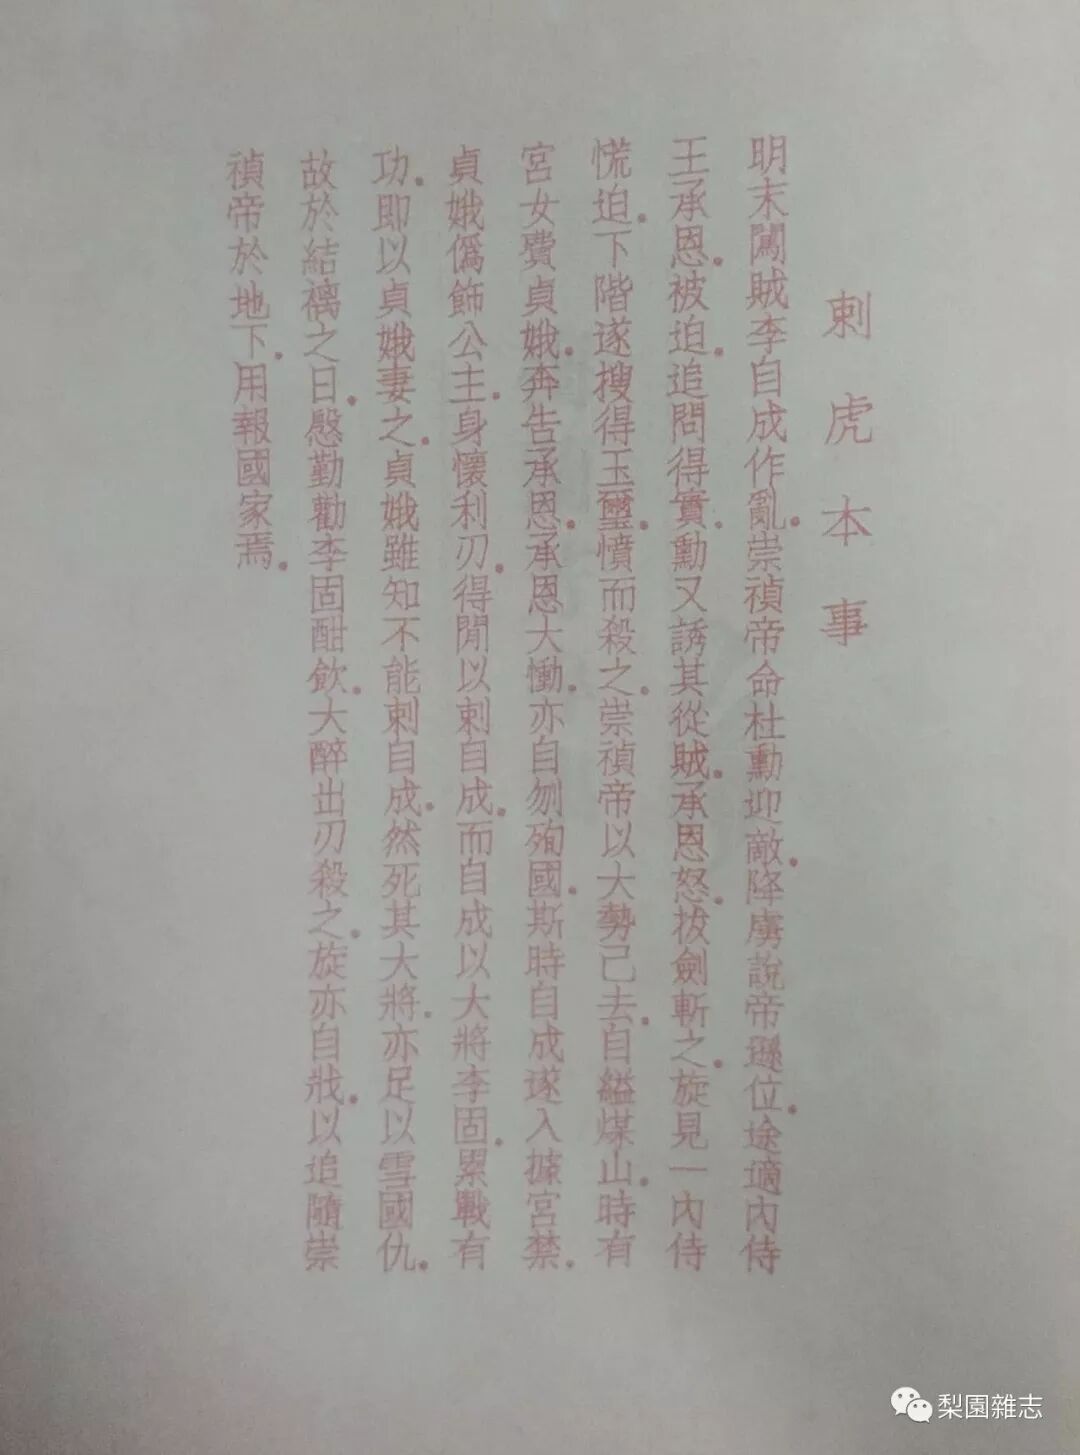 刺虎本事
明末闖賊李自成作亂.崇禎帝命杜勳迎敵.降虜說帝遜位.途適內侍
王承恩.被迫.追問得實.勳又誘其從賊.承恩怒.拔劍斬之.旋見一內侍
慌迫.下階遂搜得玉璽.憤而殺之.崇禎帝以大勢己去.自縊煤山.時有
宮女費貞娥.奔告承恩.承恩大慟.亦自刎殉國.斯時自成遂入據宮禁.
貞娥僞飾公主.身懷利刃.得閒以刺自成.而自成以大將李固.累戰有
功.即以貞娥妻之.貞娥雖知不能刺自成.然死其大將.亦足以雪國仇.
故於結褵之日.慇勤勸李固酣飲.大醉出刃殺之.旋亦自戕.以追隨崇
禎帝於地下.用報國家焉.
梨園雜志